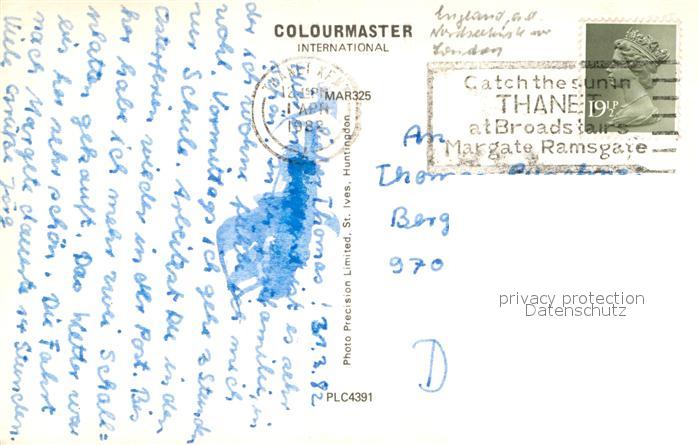 COLOURMASTER
INTERNATIONAL
MAR325
1 APR
1982
Catch the sun in
THANET
at Broadstairs
Margate Ramsgate
19½P
England
London
An
Thomas
Berg
970
D
privacy protection
Datenschutz
Photo Precision Limited, St. Ives, Huntingdon
PLC4391
31.3.82
Thomas!
es sehr
Familie, in
der ich wohne
mich
wohl. Vormittags ich gehe 3 Stunden
zur Schule. Arbeitest Du in den
Osterferien wieder in der Post. Bis
her habe ich mehr wie Schall=
platten gekauft. Das Wetter war
bis her sehr schön. Die Fahrt
nach Margate dauerte 14 Stunden.
Viele Grüße Jörg